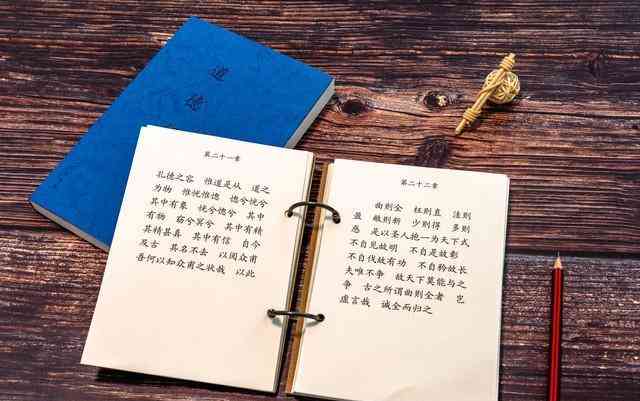 道德
第二十一章
孔德之容 惟道是从 道之
为物 惟恍惟惚 惚兮恍兮
其中有象 恍兮惚兮 其中
有物 窈兮冥兮 其中有精
其精甚真 其中有信 自今
及古 其名不去 以阅众甫
吾何以知众甫之状哉 以此
第二十二章
曲则全 枉则直 洼则
盈 敝则新 少则得 多则
惑 是以圣人抱一为天下式
不自见故明 不自是故彰
不自伐故有功 不自矜故长
夫唯不争 故天下莫能与之
争 古之所谓曲则全者 岂
虚言哉 诚全而归之